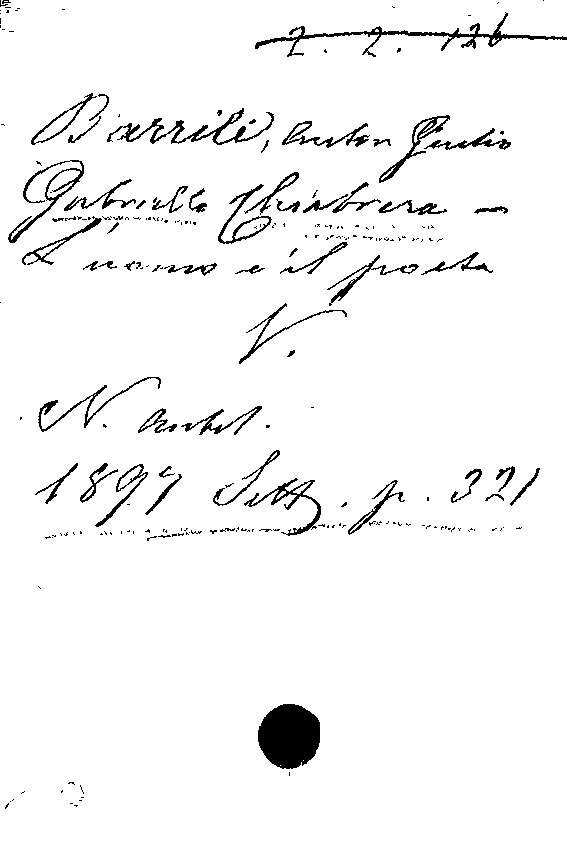 2. 2. 126
Barrili, Anton Giulio
Gabriello Chiabrera -
L'uomo e il poeta
V.
N. Antol.
1897 Sett. p. 321